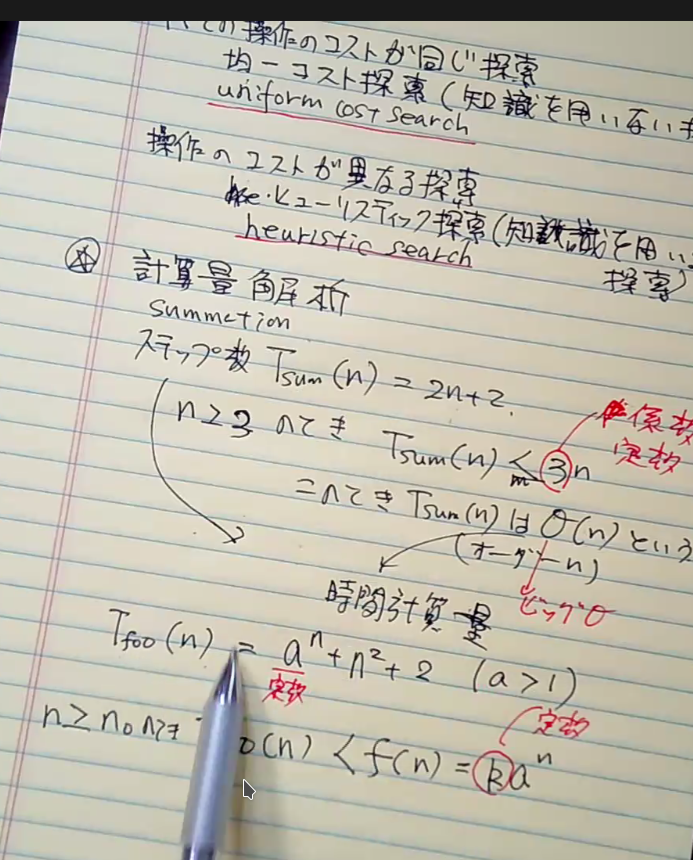 ての操作のコストが同じ探索
均一コスト探索(知識を用いない
uniform cost search
操作のコストが異なる探索
ヒューリスティック探索(知識を用い
heuristic search
探索)
計算量解析
summation
ステップ数 Tsum(n) = 2n+2.
n≥3 のとき Tsum(n) ≤ 3n
係数
定数
このとき Tsum(n) は O(n) という
(オーダーn)
ビッグO
時間計算量
Tfoo(n) = aⁿ+n²+2 (a>1)
定数
定数
n≥n₀ のとき o(n) < f(n) = kaⁿ